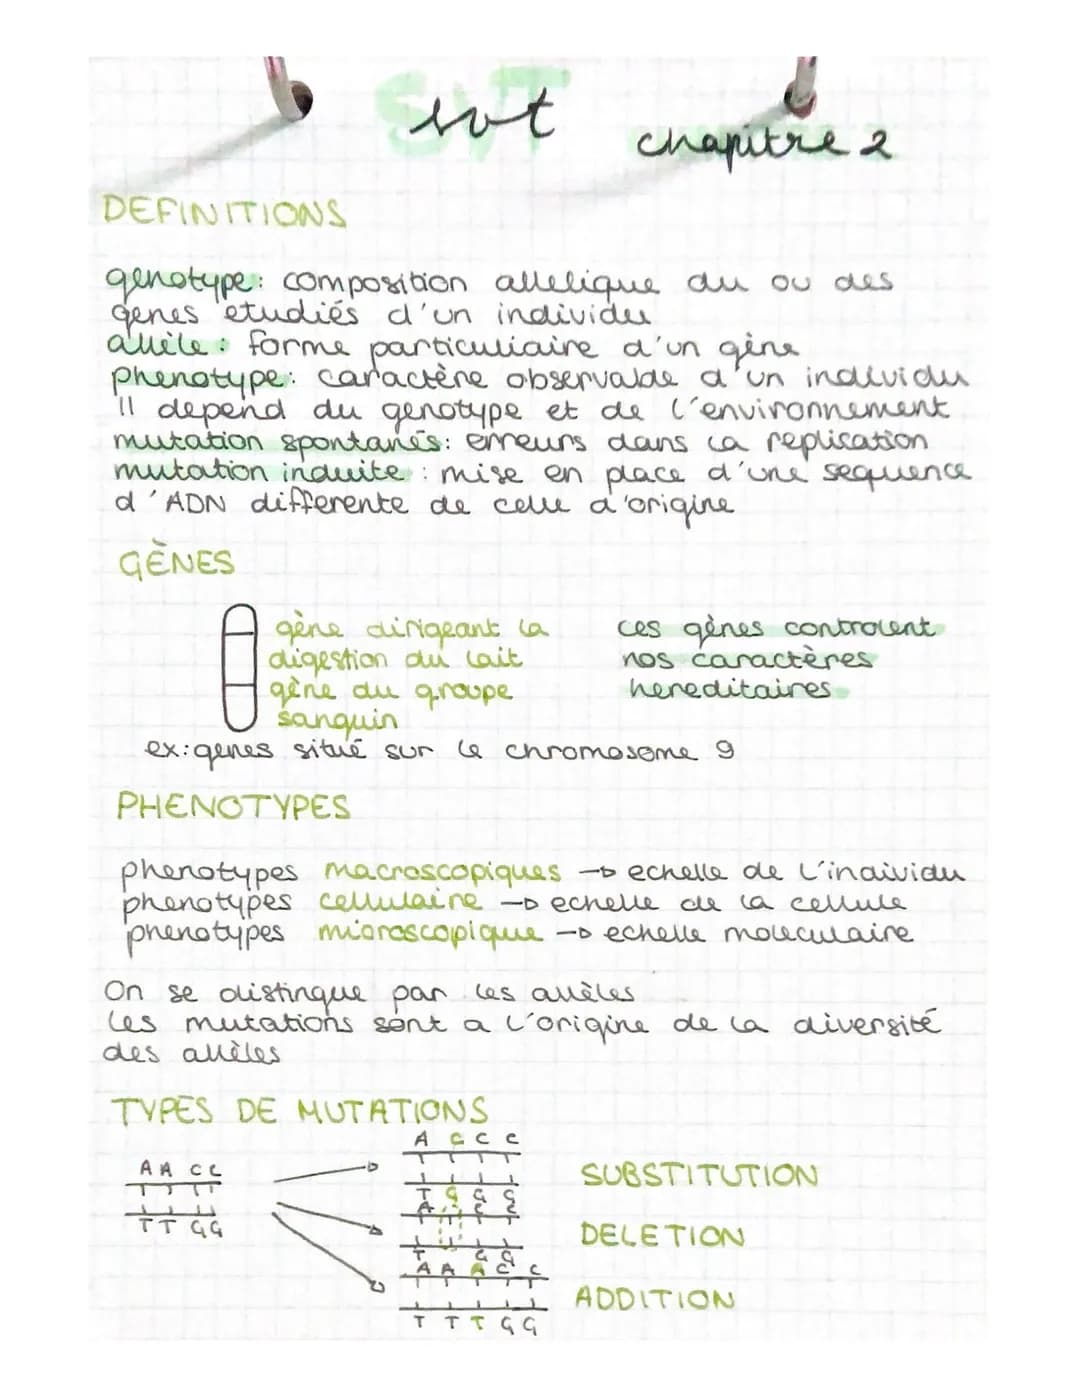 SVT
svt
chapitre 2
DEFINITIONS
genotype: composition allelique du ou des
genes etudiés d'un individu
allèle : forme particuliaire d'un gène
phenotype: caractère observable d'un individu
Il depend du genotype et de l'environnement
mutation spontanés: erreurs dans la replication
mutation induite : mise en place d'une sequence
d'ADN differente de celle d'origine
GÈNES
gène dirigeant la
digestion du lait
gène du groupe
sanguin
ces gènes controlent
nos caractères
hereditaires
ex: genes situé sur le chromosome 9
PHENOTYPES
phenotypes macroscopiques → echelle de l'individu
phenotypes cellulaire → echelle de la cellule
phenotypes microscopique → echelle moleculaire
On se distingue par les allèles
les mutations sont a l'origine de la diversité
des allèles
TYPES DE MUTATIONS
A A C C
T T G G
A C C C
T G G G
SUBSTITUTION
A C C
T G G
DELETION
A A A C C
T T T G G
ADDITION